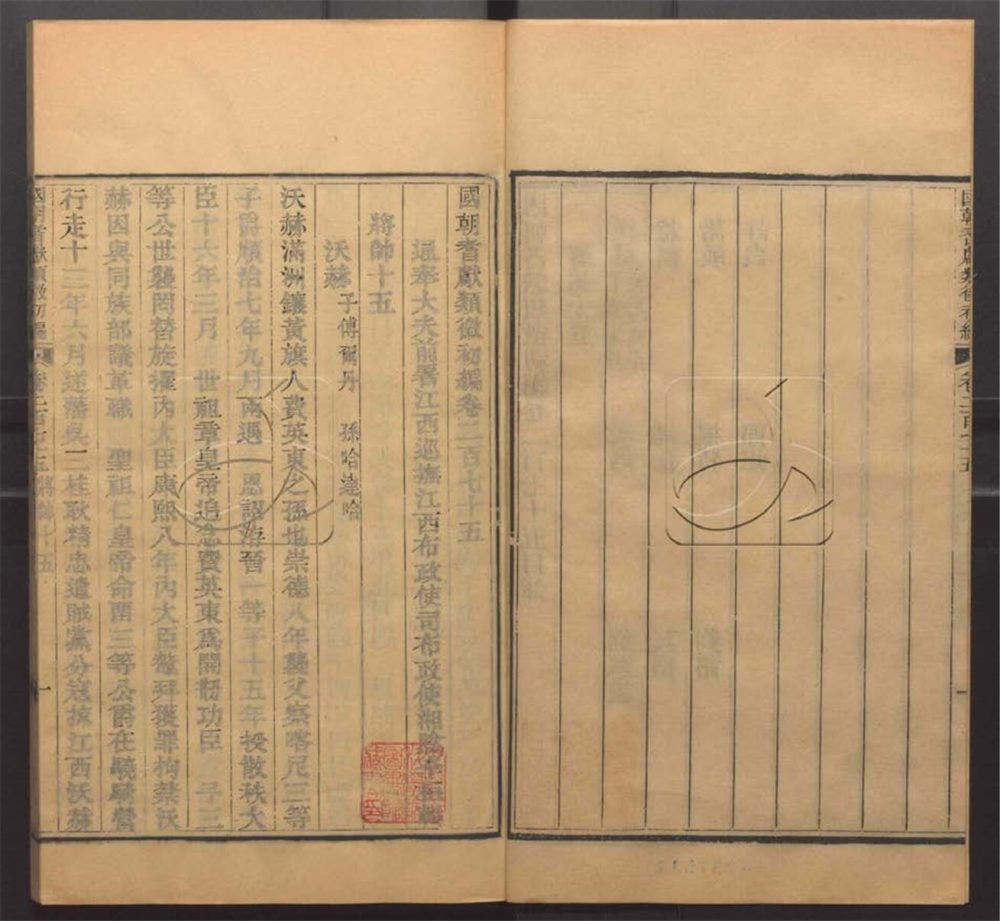 國朝耆獻類徵初編卷二百七十五
通奉大夫前署江西巡撫江西布政使司布政使湘陰李桓輯
將帥十五
沃赫 子傅爾丹 孫哈達哈
沃赫滿洲鑲黃旗人費英東之孫也崇德八年襲父察喀尼三等
子爵順治七年九月兩遇 恩詔洊晉一等子十五年授散秩大
臣十六年三月 世祖章皇帝追念費英東爲開刱功臣 予三
等公世襲罔替旋擢內大臣康熙八年內大臣鰲拜獲罪拘禁沃
赫因與同族部議革職 聖祖仁皇帝命留三等公爵在驍騎營
行走十三年六月逆藩吳三桂耿精忠遣賊黨分寇掠江西沃赫
國朝耆獻類徵初編 卷二百七十五 將帥十五 一